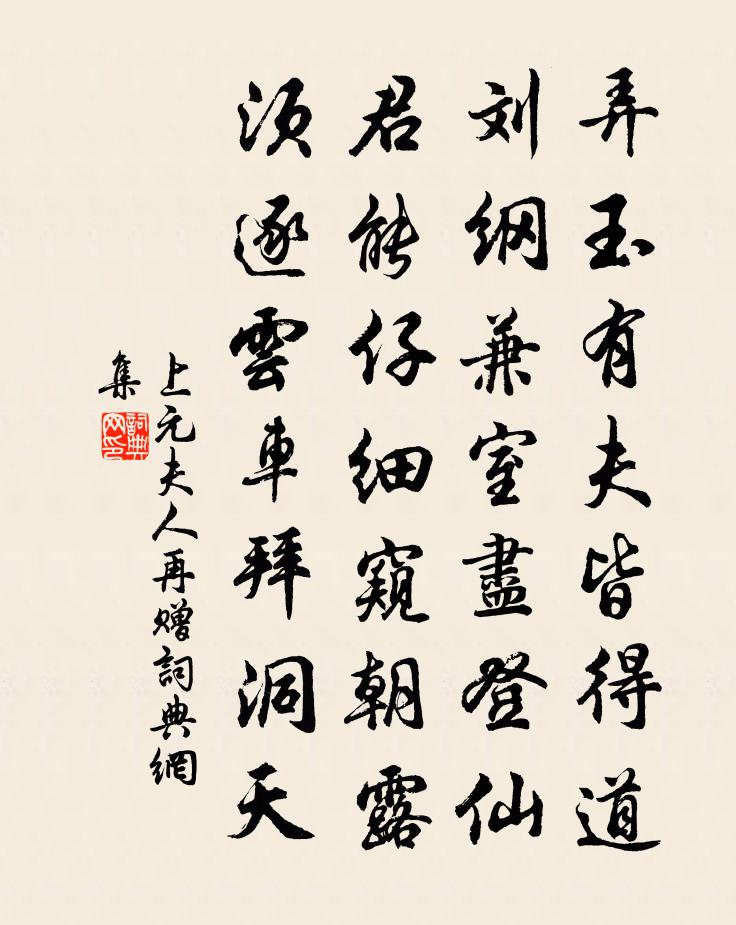 弄玉有夫皆得道
刘纲兼室盡登仙
君能仔细窺朝露
须逐雲車拜洞天
上元夫人再赠詞典網
集
詞典网印